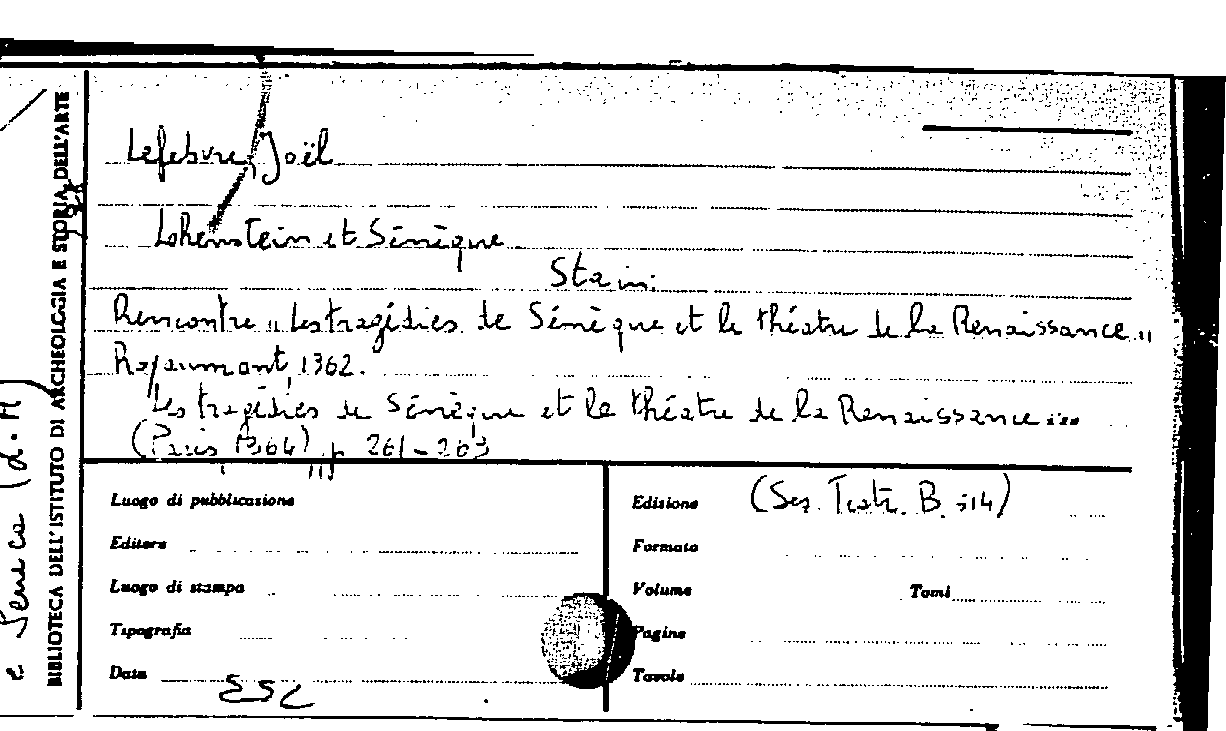 Lefebvre, Joël
Lohenstein et Sénèque
Sta in:
Rencontre "Les tragédies de Sénèque et le théatre de la Renaissance"
Royaumont, 1962.
Les tragédies de Sénèque et le théatre de la Renaissance...
(Paris 1964), p 261-269
Luogo di pubblicazione
Edizione (Sez. Teatr. B. 514)
Editore
Formato
Luogo di stampa
Volume Tomi
Tipografia
Pagine
Data ESC
Tavole
BIBLIOTECA DELL'ISTITUTO DI ARCHEOLOGIA E STORIA DELL'ARTE
e Seneca (d. M)